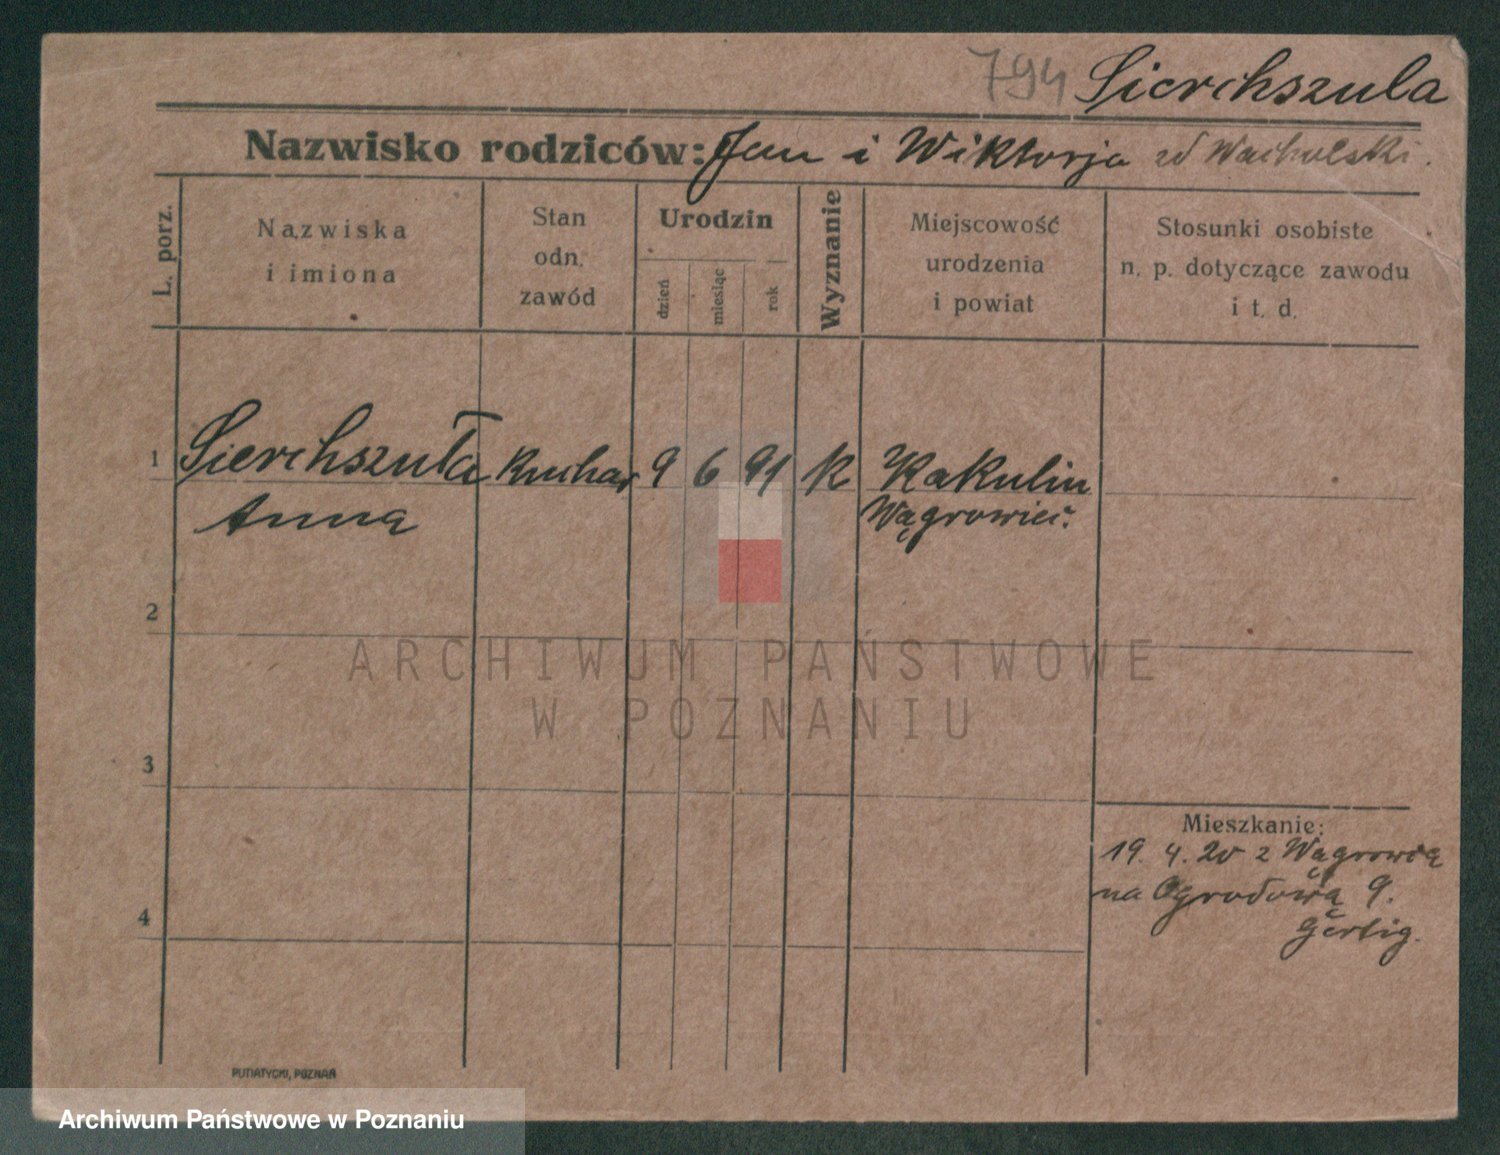 794 Sierchszula
Nazwisko rodziców: Jan i Wiktorja zd Wacholski.
L. porz.
Nazwiska
i imiona
Stan
odn.
zawód
Urodzin
dzień
miesiąc
rok
Wyznanie
Miejscowość
urodzenia
i powiat
Stosunki osobiste
n. p. dotyczące zawodu
i t. d.
1 Sierchszuła Kuchar 9 6 91 k Kakulin
Anna Wągrowiec.
2
3
4
Mieszkanie:
19. 4. 20 z Wągrowca
na Ogrodową 9.
Gertig.
PUTIATYCKI, POZNAŃ
ARCHIWUM PAŃSTWOWE
W POZNANIU
Archiwum Państwowe w Poznaniu